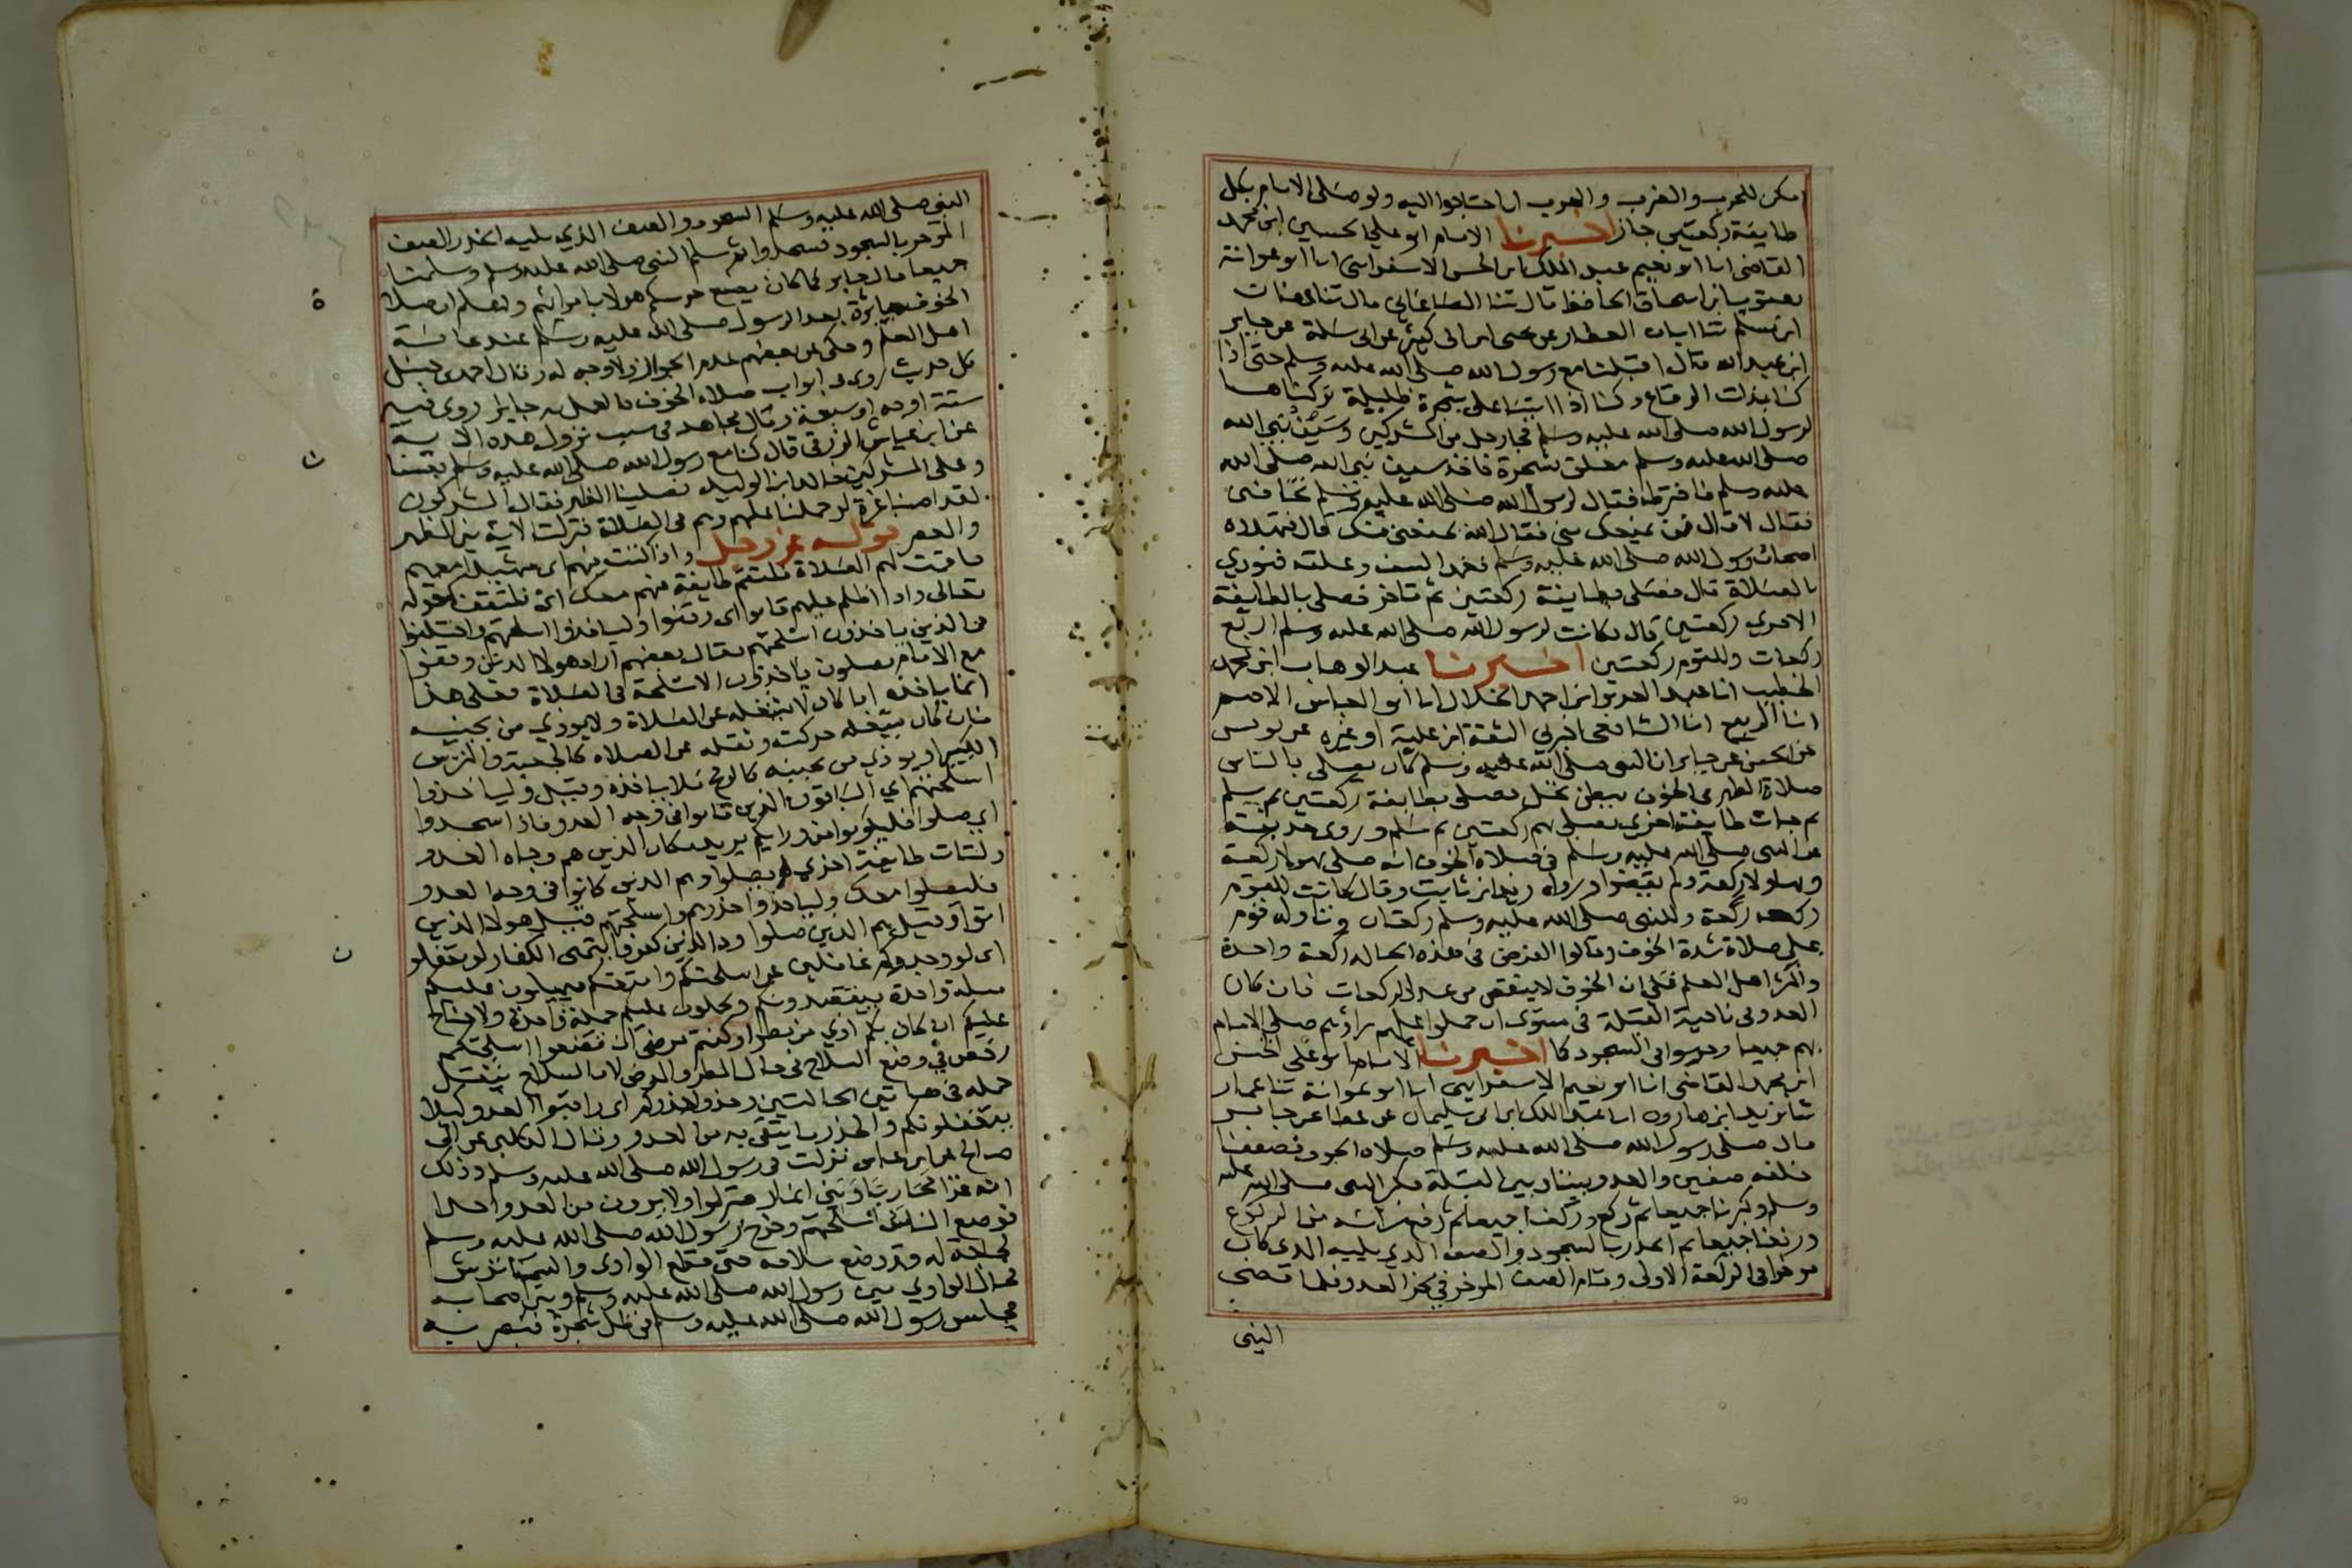 امكن للحرب والضرب والهرب ان احتاجوا اليه ولو صلى الامام بكل
طايفة ركعتين جاز اخبرنا الامام ابو علي الحسين ابن محمد
القاضي انا ابو نعيم عبد الملك ابن الحسن الاسفرايني انا ابو عوانة
يعقوب ابن اسحاق الحافظ قال ثنا الصاغاني قال ثنا عفان
ابن مسلم ثنا ابان العطار عن يحيى ابن ابي كثير عن ابي سلمة عن جابر
ابن عبد الله قال اقبلنا مع رسول الله صلى الله عليه وسلم حتى اذا
كنا بذات الرقاع وكنا اذا اتينا على شجرة ظليلة تركناها
لرسول الله صلى الله عليه وسلم فجا رجل من المشركين وسيف نبي الله
صلى الله عليه وسلم معلق بشجرة فاخذ سيف نبي الله صلى الله
عليه وسلم فاخترطه فقال لرسول الله صلى الله عليه وسلم تخافني
فقال لا قال فمن يمنعك مني فقال الله يمنعني منك قال فتهدده
اصحاب رسول الله صلى الله عليه وسلم فغمد السيف وعلقه فنودي
بالصلاة قال فصلى بطايفة ركعتين ثم تاخر فصلى بالطايفة
الاخرى ركعتين قال فكانت لرسول الله صلى الله عليه وسلم اربع
ركعات وللقوم ركعتين اخبرنا عبد الوهاب ابن محمد
الخطيب انا عبد العزيز ابن احمد الخلال انا ابو العباس الاصم
انا الربيع انا الشافعي اخبرني الثقة ابن علية او غيره عن يونس
عن الحسن عن جابر ان النبي صلى الله عليه وسلم كان يصلي بالناس
صلاة الظهر في الخوف ببطن نخل فصلى بطايفة ركعتين ثم سلم
ثم جات طايفة اخرى فصلى بهم ركعتين ثم سلم وروى حذيفة
عن النبي صلى الله عليه وسلم في صلاة الخوف انه صلى بهولا ركعة
وبهاولا ركعة ولم يقضوا ورواه زيد ابن ثابت وقال كانت للقوم
ركعة ركعة وللنبي صلى الله عليه وسلم ركعتان وتاوله قوم
على صلاة شدة الخوف وقالوا الفرض في هذه الحالة ركعة واحدة
واكثر اهل العلم على ان الخوف لا ينقص من عدد الركعات فان كان
العدو في ناحية القبلة في مستوى ان حملوا عليهم راوهم صلى الامام
بهم جميعا وحرسوا في السجود كما اخبرنا الامام ابو علي الحسن
ابن محمد القاضي انا ابو نعيم الاسفرايني انا ابو عوانة ثنا عمار
ثنا يزيد ابن هارون انا عبد الملك ابن ابي سليمان عن عطا عن جابر
قال صلى رسول الله صلى الله عليه وسلم صلاة الخوف فصففنا
خلفه صفين والعدو بيننا وبين القبلة فكبر النبي صلى الله عليه
وسلم وكبرنا جميعا ثم ركع وركعنا جميعا ثم رفع راسه من الركوع
ورفعنا جميعا ثم انحدر بالسجود والصف الذي يليه الذي كان
موخرا في الركعة الاولى وقام الصف الموخر في نحر العدو فلما قضى
النبي
النبي صلى الله عليه وسلم السجود والصف الذي يليه انحدر الصف
الموخر بالسجود فسجدوا ثم سلم النبي صلى الله عليه وسلم وسلمنا
جميعا قال جابر كما كان يصنع حرسكم هولا بامرايهم واعلم ان صلاة
الخوف جايزة بعد الرسول صلى الله عليه وسلم عند عامة
اهل العلم وحكى عن بعضهم عدم الجواز ولا وجه له وقال احمد بن حنبل
كل حديث روي في ابواب صلاة الخوف فالعمل به جايز روى فيه
ستة اوجه او سبعة وقال مجاهد في سبب نزول هذه الاية
عن ابن عياش الزرقي قال كنا مع رسول الله صلى الله عليه وسلم بعسفان
وعلى المشركين خالد ابن الوليد فصلينا الظهر فقال المشركون
لقد اصبنا غرة لو حملنا عليهم وهم في الصلاة فنزلت الاية بين الظهر
والعصر قوله عز وجل واذا كنت فيهم اى شهيدا معهم
فاقمت لهم الصلاة فلتقم طايفة منهم معك اى فلتقف كقوله
تعالى واذا اظلم عليهم قاموا اى وقفوا وليأخذوا اسلحتهم واختلفوا
في الذين ياخذون اسلحتهم فقال بعضهم اراد هولا الذين وقفوا
مع الامام يصلون ياخذون الاسلحة في الصلاة فعلى هذا
انما ياخذه اذا كان لا يشغله عن الصلاة ولا يوذي من بجنبه
فان كان يشغله حركته وثقله عن الصلاة كالجعبة والترس
الكبير او يوذي من بجنبه كالرمح فلا ياخذه وقيل وليأخذوا
اسلحتهم اي الباقون الذين قاموا في وجه العدو فاذا سجدوا
اي صلوا فليكونوا من ورايكم يريد مكان الذين هم وجاه العدو
ولتات طايفة اخرى لم يصلوا وهم الذين كانوا في وجه العدو
فليصلوا معك وليأخذوا حذرهم واسلحتهم قيل هولا الذين
اتوا وقيل هم الذين صلوا ود الذين كفروا يتمنى الكفار لو تغفلون
اى لو وجدوكم غافلين عن اسلحتكم وامتعتكم فيميلون عليكم
ميلة واحدة فيقصدونكم ويحملون عليكم حملة واحدة ولا جناح
عليكم ان كان بكم اذى من مطر او كنتم مرضى ان تضعوا اسلحتكم
رخص في وضع السلاح في حال المطر والمرض لان السلاح يثقل
حمله في هاتين الحالتين وخذوا حذركم اى راقبوا العدو كيلا
يتغفلونكم والحذر ما يتقى به من العدو وقال الكلبي عن ابي
صالح عن ابن عباس نزلت في رسول الله صلى الله عليه وسلم وذلك
انه غزا محاربا وبني انمار فنزلوا ولا يرون من العدو احدا
فوضع الناس اسلحتهم وخرج رسول الله صلى الله عليه وسلم
لحاجة له وقد وضع سلاحه حتى قطع الوادي والسما ترش
فحال الوادي بين رسول الله صلى الله عليه وسلم وبين اصحابه
فجلس رسول الله صلى الله عليه وسلم في ظل شجرة فبصر به